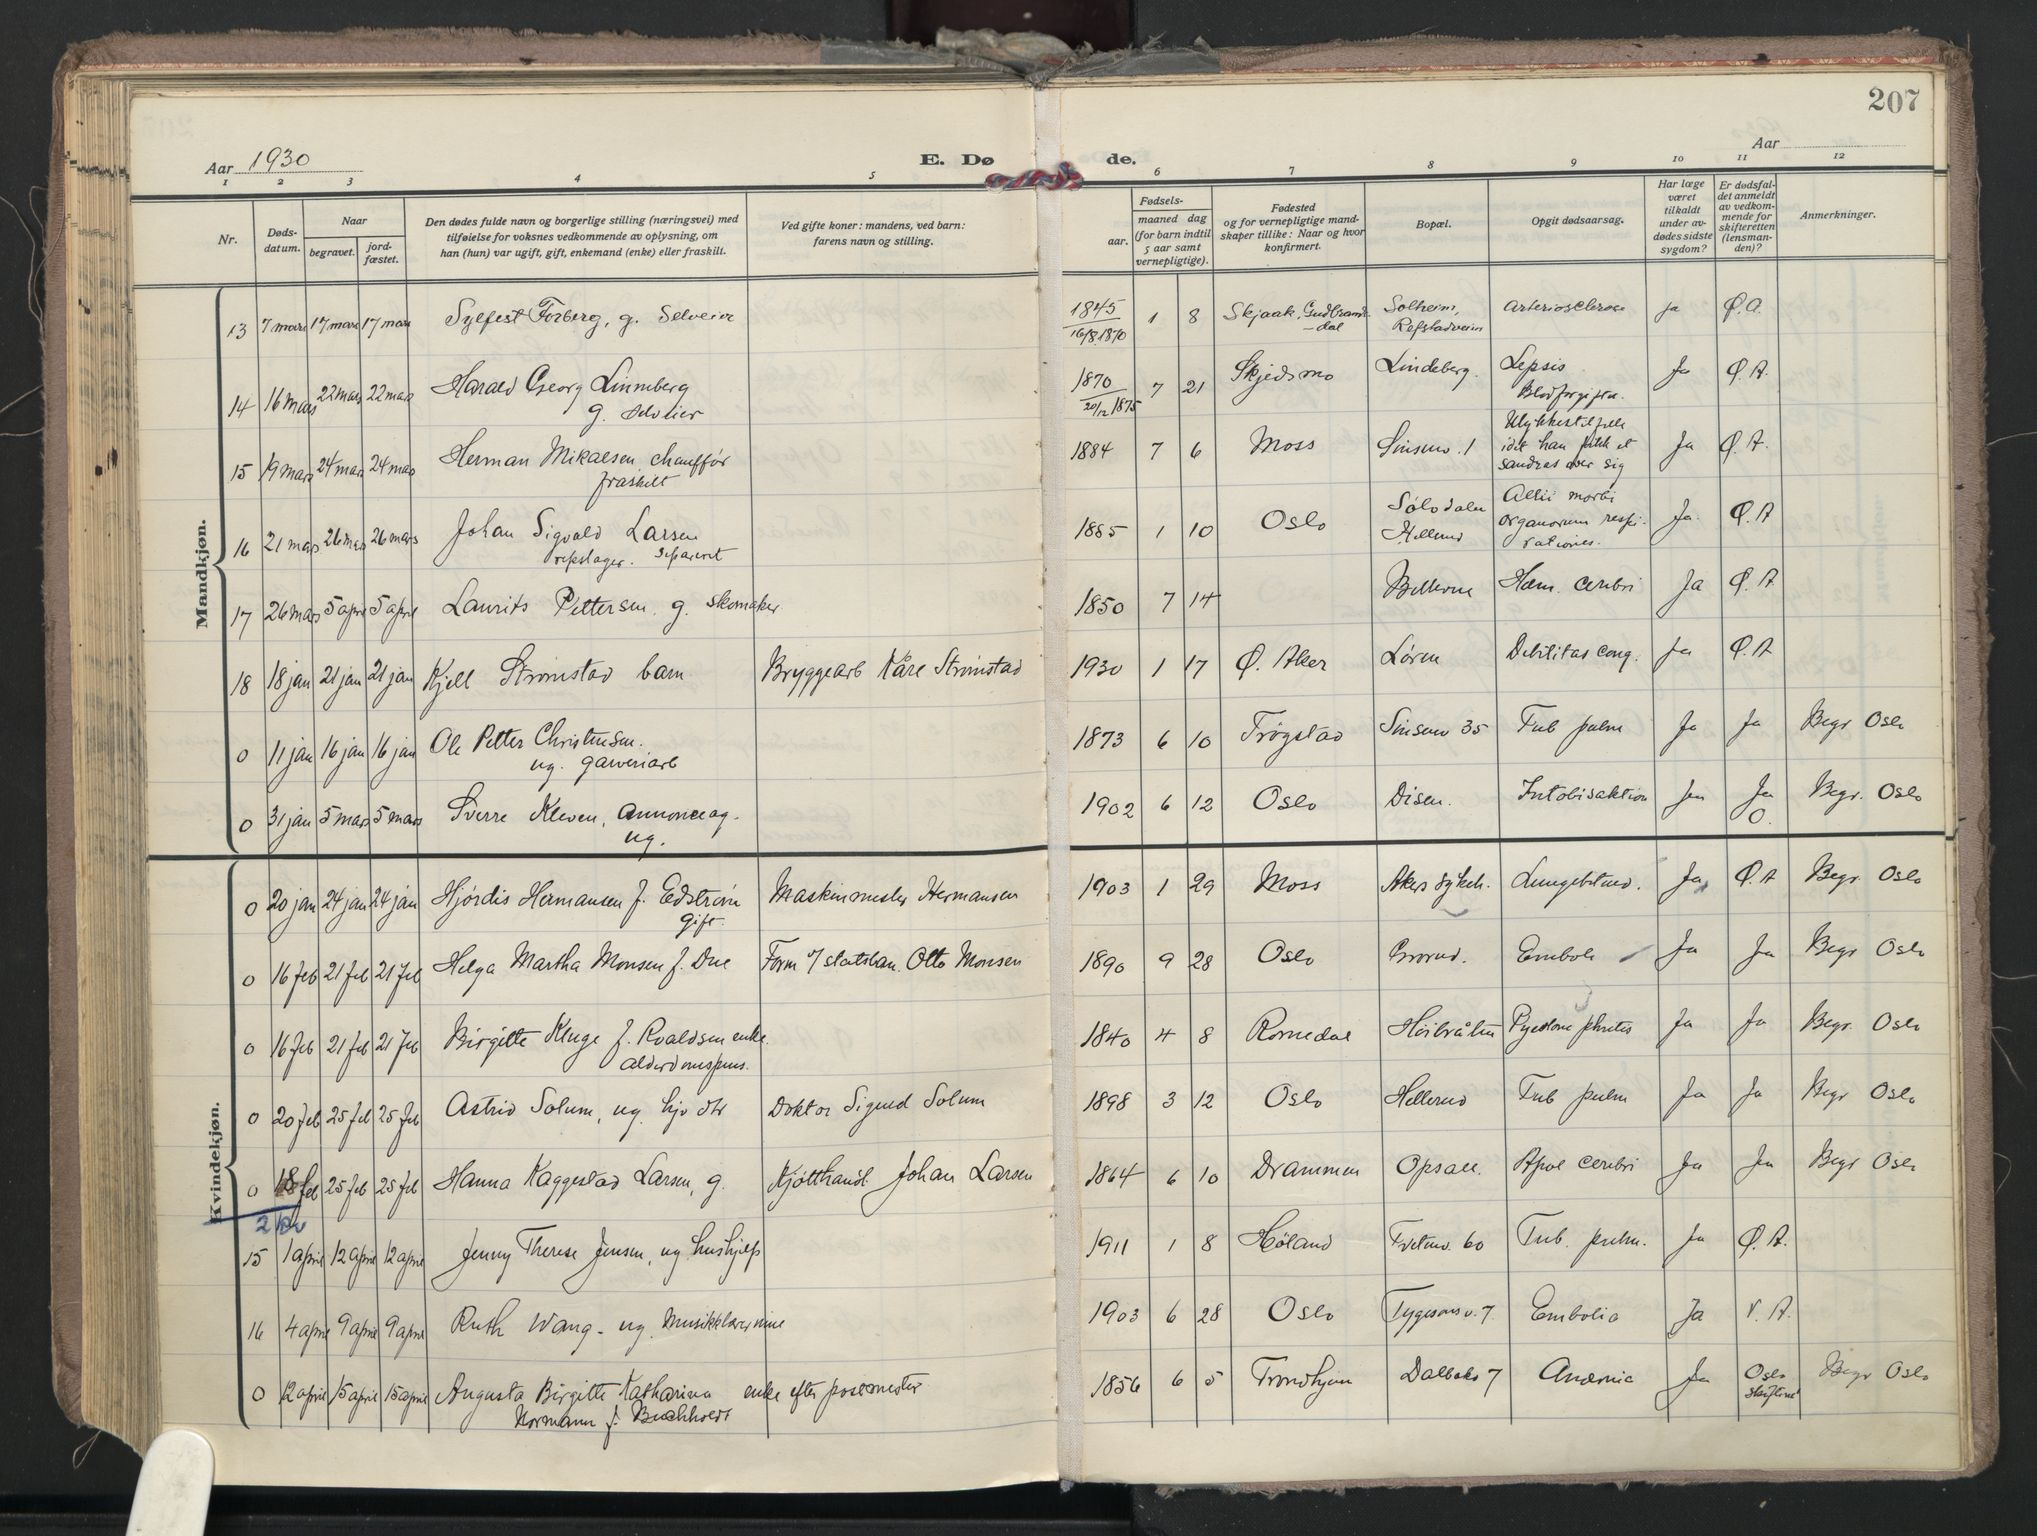 207
Aar 1930
E. Dø de.
Aar
1 2 3 4 5 6 7 8 9 10 11 12
Nr.
Døds-
datum.
Naar
begravet.
jord-
fæstet.
Den dødes fulde navn og borgerlige stilling (næringsvei) med
tilføielse for voksnes vedkommende av oplysning, om
han (hun) var ugift, gift, enkemand (enke) eller fraskilt.
Ved gifte koner: mandens, ved barn:
farens navn og stilling.
Fødsels-
aar.
maaned dag
(for barn indtil
5 aar samt
vernepligtige).
Fødested
og for vernepligtige mand-
skaper tillike: Naar og hvor
konfirmert.
Bopæl.
Opgit dødsaarsag.
Har læge
været
tilkaldt
under av-
dødes sidste
sygdom?
Er dødsfal-
det anmeldt
av vedkom-
mende for
skifteretten
(lensman-
den)?
Anmerkninger.
Mandkjøn.
13 7 mars 17 mars 17 mars Sylfest Forberg, g. Selveier 1845 1 8 Skjaak, Gudbrands- Solheim, Arteriosclerose Ja Ø.A.
16/8.1870 -dal Refstadveien
14 16 mars 22 mars 22 mars Harald Georg Linneberg 1870 7 21 Skjedsmo Lindeberg. Lepsis Ja Ø.A.
g. selveier 20/12 1875 Blodforgiftn.
15 19 mars 24 mars 24 mars Herman Mikaelsen, chauffør 1884 7 6 Moss Sinsenv. 1 Ulykkestilfelle Ja Ø.A.
fraskilt idet han fikk et
sandras over sig
16 21 mars 26 mars 26 mars Johan Sigvald Larsen 1885 1 10 Oslo Hellerud Allii morbi Ja. Ø.A
repslager. separert organorum respi-
rationis.
17 26 mars 5 april 5 april Laurits Pettersen, g. skomaker 1850 7 14 Hæm. cerebri Ja Ø.A
18 18 jan 21 jan 21 jan Kjell Strømstad barn Bryggearb Kåre Strømstad 1930 1 17 Ø. Aker Løren Debilitas cong. Ja Ø.A
0 11 jan 16 jan 16 jan Ole Petter Christensen. 1873 6 10 Trøgstad Sinsenv 35 Tub pulm Ja Ja Begr Oslo
ug. garveriarb
0 31 jan 5 mars 5 mars Sverre Kleven, annonceag. 1902 6 12 Oslo Disen. Intoxisaktion Ja Ja Begr. Oslo
ug. O.
Kvindekjøn.
0 20 jan 24 jan 24 jan Hjørdis Hermansen f. Edstrøm Maskinmester Hermansen 1903 1 29 Moss Akers sykeh. Lungebetend. Ja Ø.A Begr. Oslo
gift.
0 16 feb 21 feb 21 feb Helga Martha Monsen f. Due Form v/ statsban. Otto Monsen 1890 9 28 Oslo Grorud. Emboli Ja Ja Begr Oslo
0 16 feb 21 feb 21 feb Birgitte Kluge f. Roaldsen enke. 1840 4 8 Romedal Høibråten Ja Ja Begr. Oslo
alderdomspens.
0 20 feb 25 feb 25 feb Astrid Solum, ug. hjv dtr Doktor Sigurd Solum 1898 3 12 Oslo Hellerud Tub pulm Ja Ja Begr Oslo
0 18 feb 25 feb 25 feb Hanna Kaggestad Larsen, g. Kjøtthandl. Johan Larsen 1864 6 10 Drammen Opsall. Apol cerebri Ja Ja Begr Oslo
15 1 april 12 april 12 april Jenny Therese Jensen, ug hushjelp 1911 1 8 Høland Tvetenv. 60 Tub. pulm. Ja Ø.A.
16 4 april 9 april 9 april Ruth Wang - ug. Musikklærerinne 1903 6 28 Oslo Tygesons v. 7 Embolia Ja V.A.
0 12 april 15 april 15 april Augusta Birgitte Katharina enke efter postmester 1856 6 5 Trondhjem Dalbaks 7 Anæmie Ja Oslo Begr Oslo
Normann f. Buchholdt skifteret